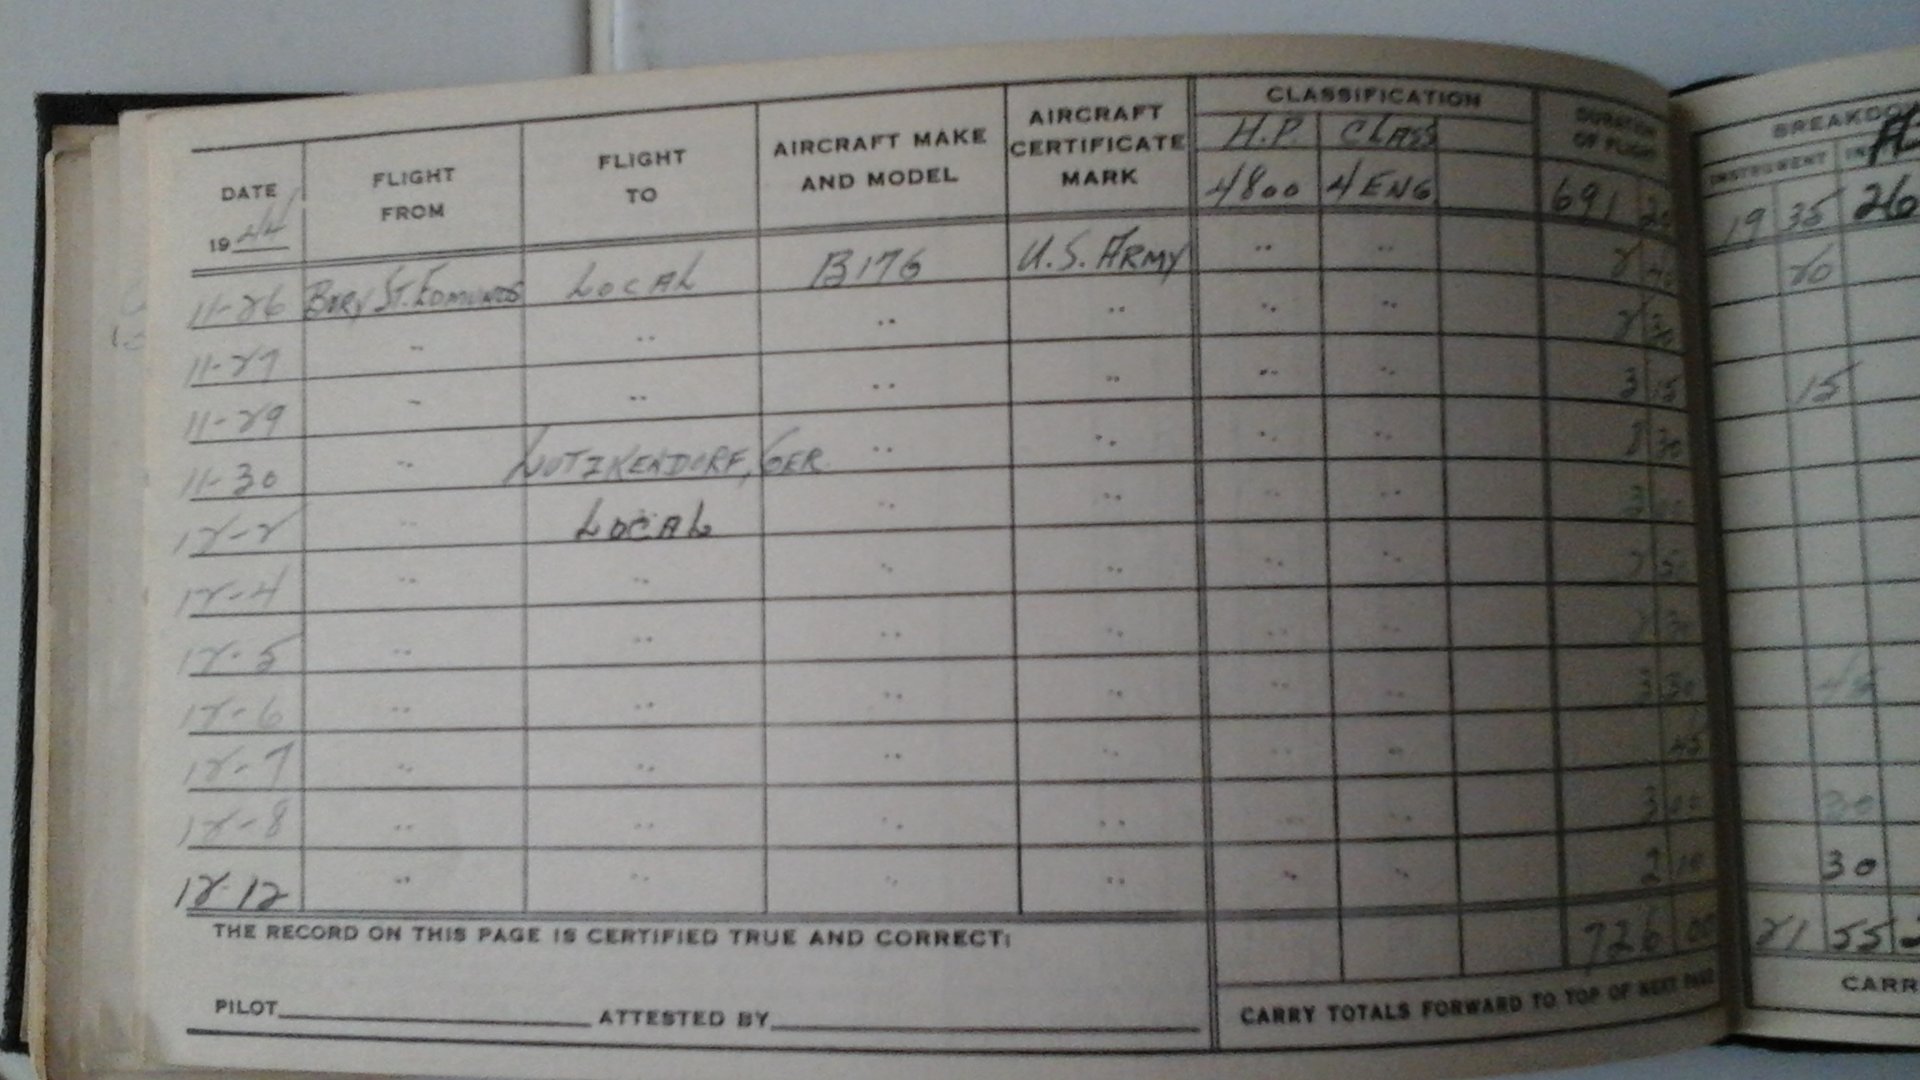 CLASSIFICATION
DATE 1944 FLIGHT FROM FLIGHT TO AIRCRAFT MAKE AND MODEL AIRCRAFT CERTIFICATE MARK H.P. CLASS DURATION OF FLIGHT INSTRUMENT
4800 4 ENG 691 20 19 35 26
11-26 BURY ST. EDMUNDS LOCAL B17G U.S. ARMY .. .. 2 20
11-27 .. .. .. .. .. .. 2
11-29 .. .. .. .. .. .. 3 15 15
11-30 .. LUTZKENDORF, GER. .. .. .. .. 30
12-2 .. LOCAL .. .. .. .. 3
12-4 .. .. .. .. .. ..
12-5 .. .. .. .. .. .. 2 30
12-6 .. .. .. .. .. .. 3 30
12-7 .. .. .. .. .. .. 45
12-8 .. .. .. .. .. .. 3 00 30
12-12 .. .. .. .. .. .. 2 10 30
726 00 21 55
THE RECORD ON THIS PAGE IS CERTIFIED TRUE AND CORRECT:
PILOT ATTESTED BY
CARRY TOTALS FORWARD TO TOP OF NEXT PAGE
CARR